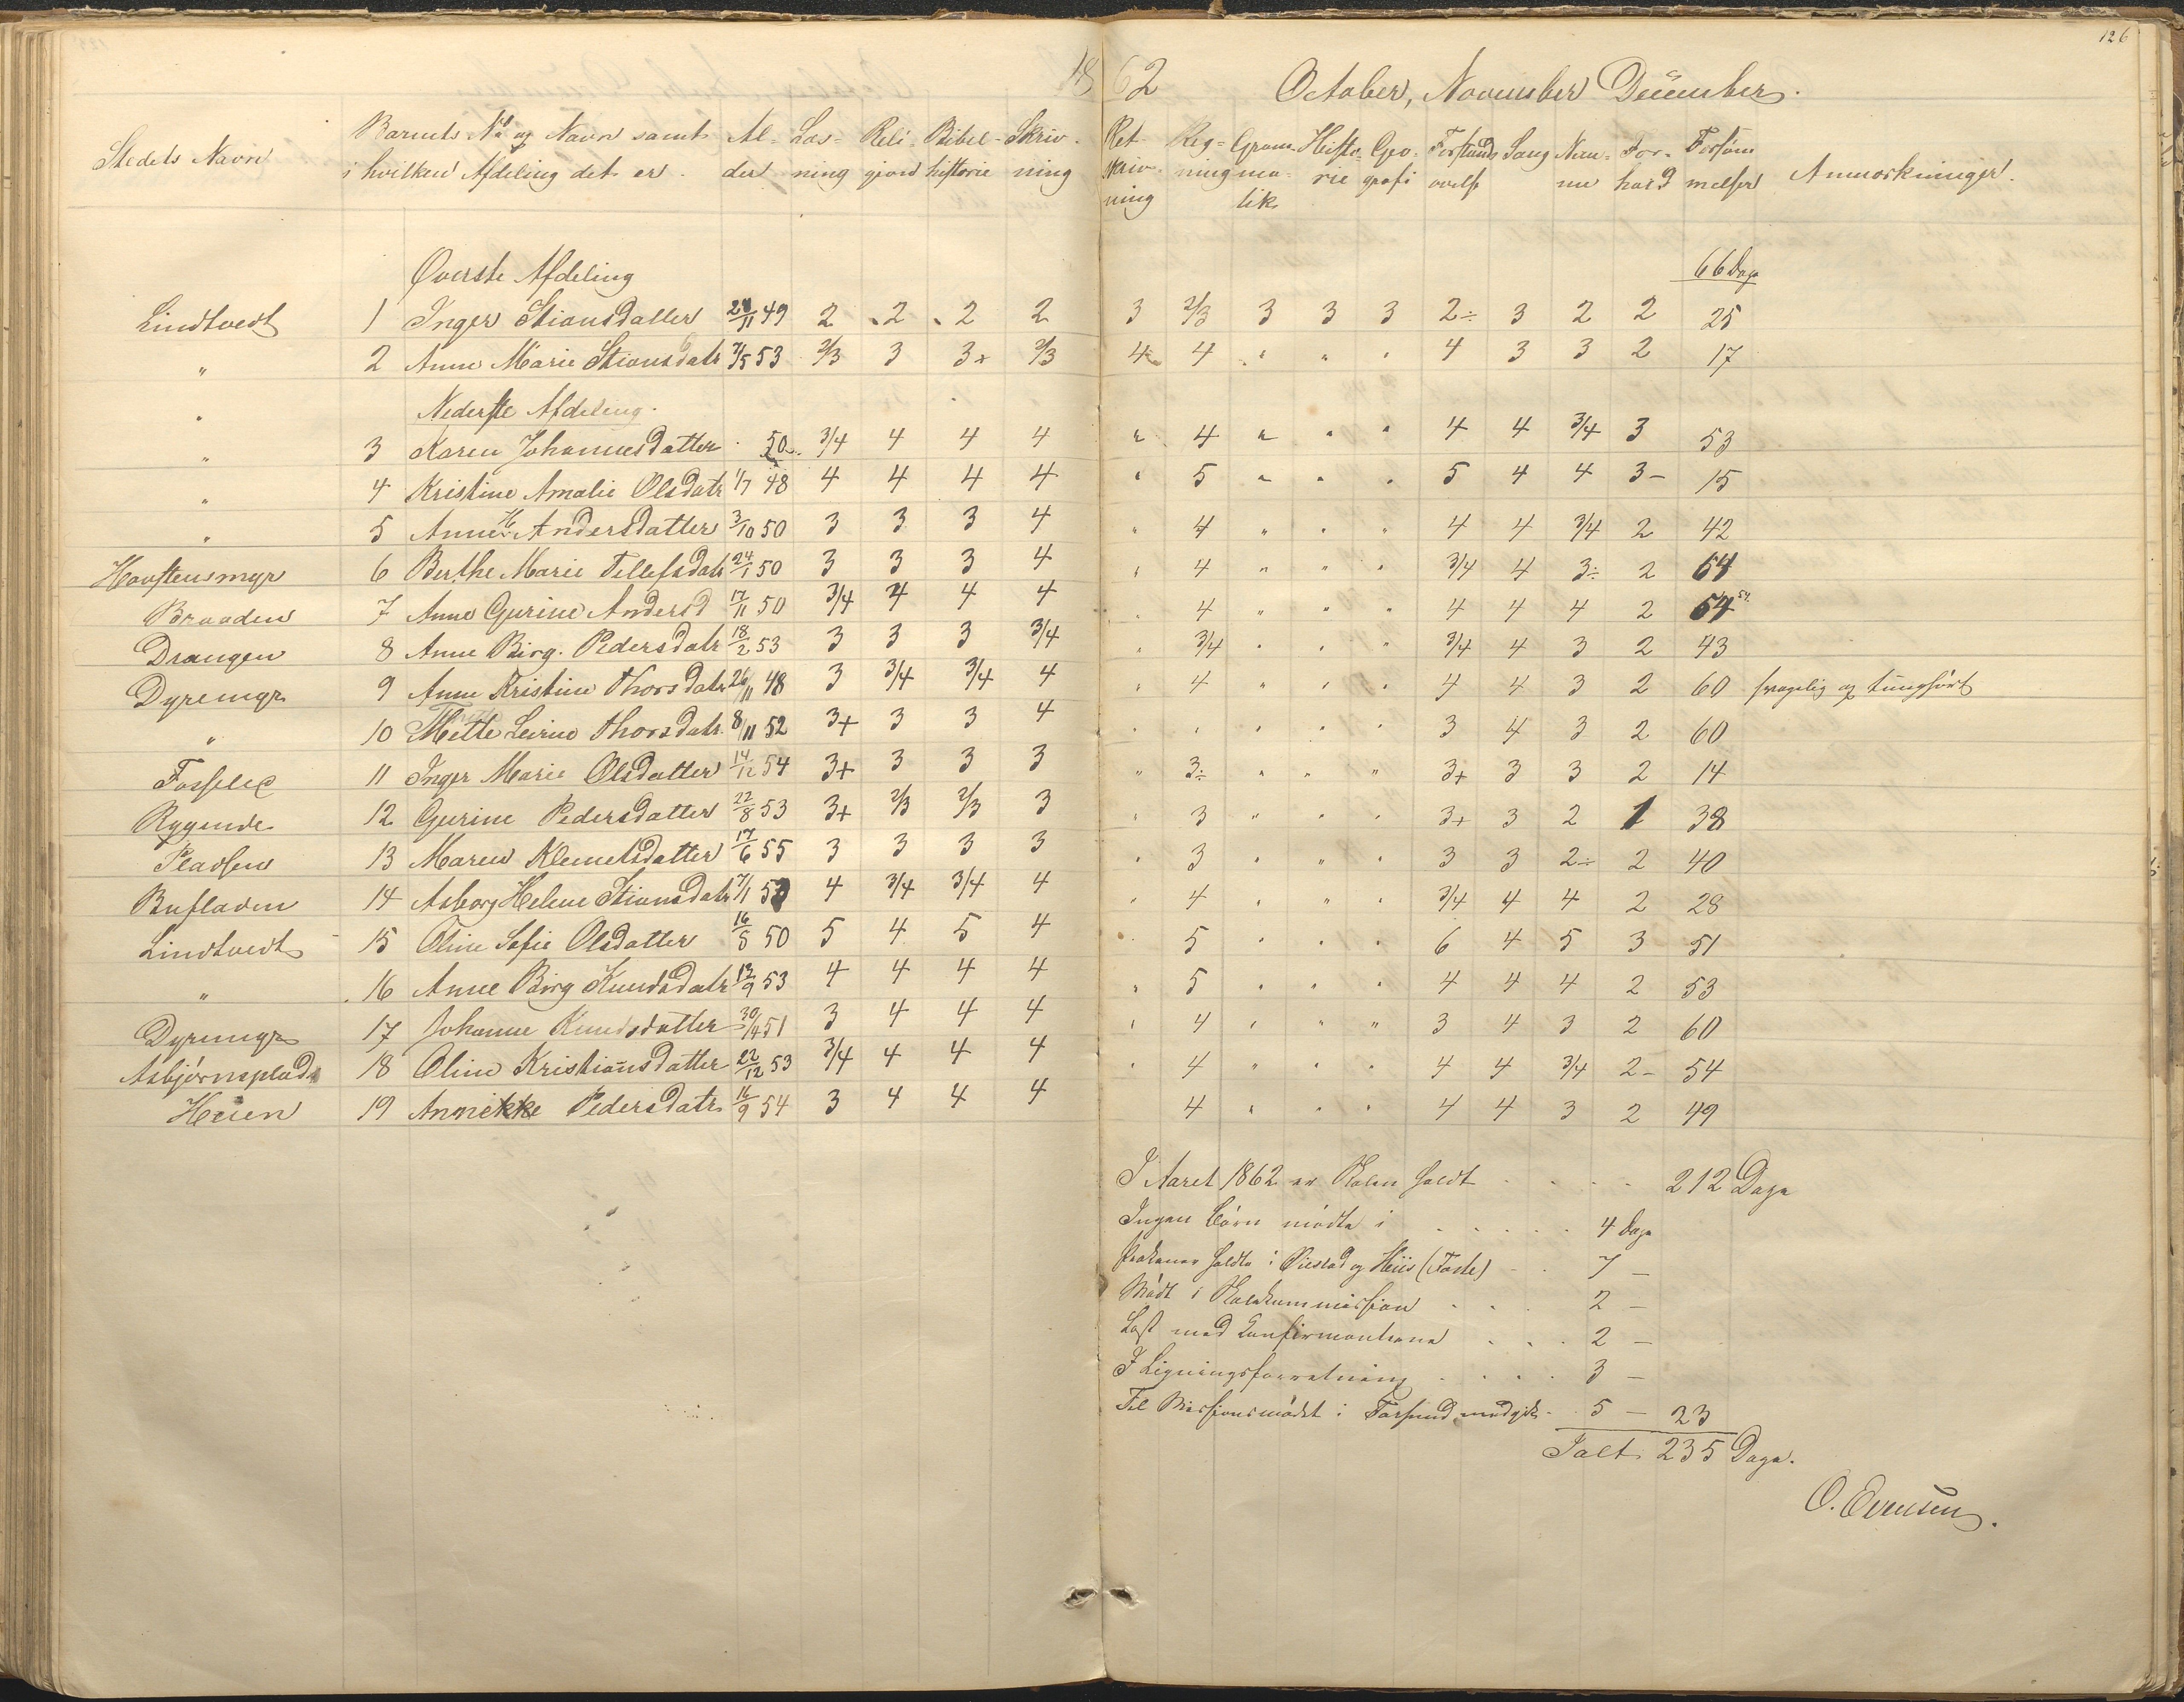 126
1862 October, November December.
Stedets Navn | Barnets No og Navn samt i hvilken Afdeling det er. | Al-der | Læs-ning | Reli-gion | Bibel-historie | Skriv-ning | Ret-skriv-ning | Reg-ning | Gram-ma-tik | Histo-rie | Geo-grafi | Forstands øvelse | Sang | Nem-me | For-hold | Forsøm melser | Anmærkninger.
Øverste Afdeling 66 Dage
Lindtvedt 1 Inger Stiansdatter 28/11 49 2 2 2 2 3 2/3 3 3 3 2÷ 3 2 2 25
" 2 Anne Marie Stiansdatr 7/5 53 2/3 3 3+ 2/3 4 4 " " " 4 3 3 2 17
" Nederste Afdeling.
" 3 Karen Johannesdatter 50 3/4 4 4 4 " 4 " " " 4 4 3/4 3 53
" 4 Kristine Amalie Olsdatr 1/7 48 4 4 4 4 " 5 " " " 5 4 4 3- 15
" 5 Anne H. Andersdatter 3/10 50 3 3 3 4 " 4 " " " 4 4 3/4 2 42
Havstensmyr 6 Berthe Marie Tellefsdatr 24/1 50 3 3 3 4 " 4 " " " 3/4 4 3÷ 2 54
Braaden 7 Anne Gurine Andersd 17/11 50 3/4 4 4 4 " 4 " " " 4 4 4 2 54 54.
Drangen 8 Anne Birg. Pedersdatr 18/2 53 3 3 3 3/4 " 3/4 " " " 3/4 4 3 2 43
Dyremyr 9 Anne Kristine Thorsdatr 26/11 48 3 3/4 3/4 4 " 4 " " " 4 4 3 2 60 svagelig og tunghørt
" 10 Mette Leirine Thorsdatr. 8/11 52 3+ 3 3 4 " " " " " 3 4 3 2 60
Fosselie 11 Inger Marie Olsdatter 14/12 54 3+ 3 3 3 " 3÷ " " " 3+ 3 3 2 14
Rygende 12 Gurine Pedersdatter 22/8 53 3+ 2/3 2/3 3 " 3 " " " 3+ 3 2 1 38
Pladsen 13 Maren Klemetsdatter 17/6 55 3 3 3 3 " 3 " " " 3 3 2÷ 2 40
Bufladen 14 Asborg Helene Stiansdatr 7/1 53 4 3/4 3/4 4 " 4 " " " 3/4 4 4 2 28
Lindtvedt 15 Oline Sofie Olsdatter 16/5 50 5 4 5 4 " 5 " " " 6 4 5 3 51
" 16 Anne Birg Knudsdatr 12/9 53 4 4 4 4 " 5 " " " 4 4 4 2 53
Dyremyr 17 Johanne Knudsdatter 30/4 51 3 4 4 4 " 4 " " " 3 4 3 2 60
Asbjørnsplads 18 Oline Kristiansdatter 22/12 53 3/4 4 4 4 " 4 " " " 4 4 3/4 2- 54
Heien 19 Annikke Pedersdatr 16/9 54 3 4 4 4 4 " " " 4 4 3 2 49
I Aaret 1862 er Skolen holdt 212 Dage
Ingen Børn mødte i 4 Dage
Prøver holdte i Øiestad og Hiis (Faste) 7 —
Mødt i Skolekommission 2 —
Læst med Konfirmanterne 2 —
I Ligningsforretning 3 —
Til Missionsmødet i Farsund medgik 5 — 23
Ialt 235 Dage.
O. Evensen.